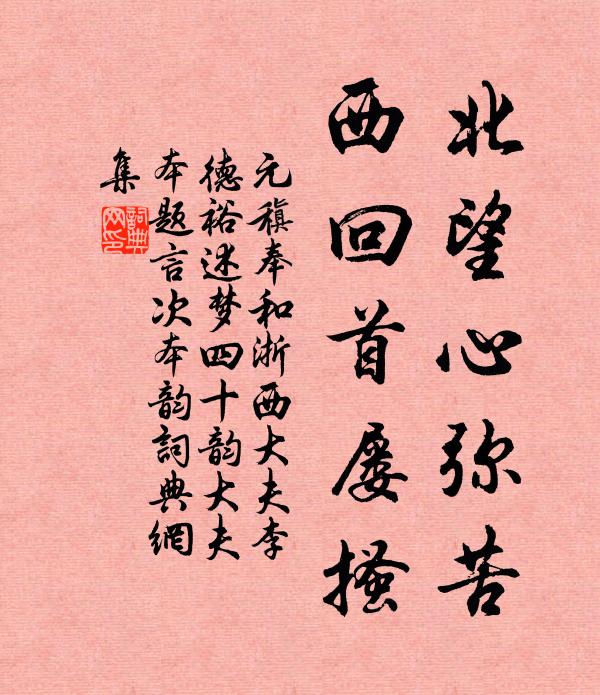 北望心弥苦
西回首屡搔
元稹奉和浙西大夫李
德裕述梦四十韵大夫
本题言次本韵詞典網
集
詞典網印